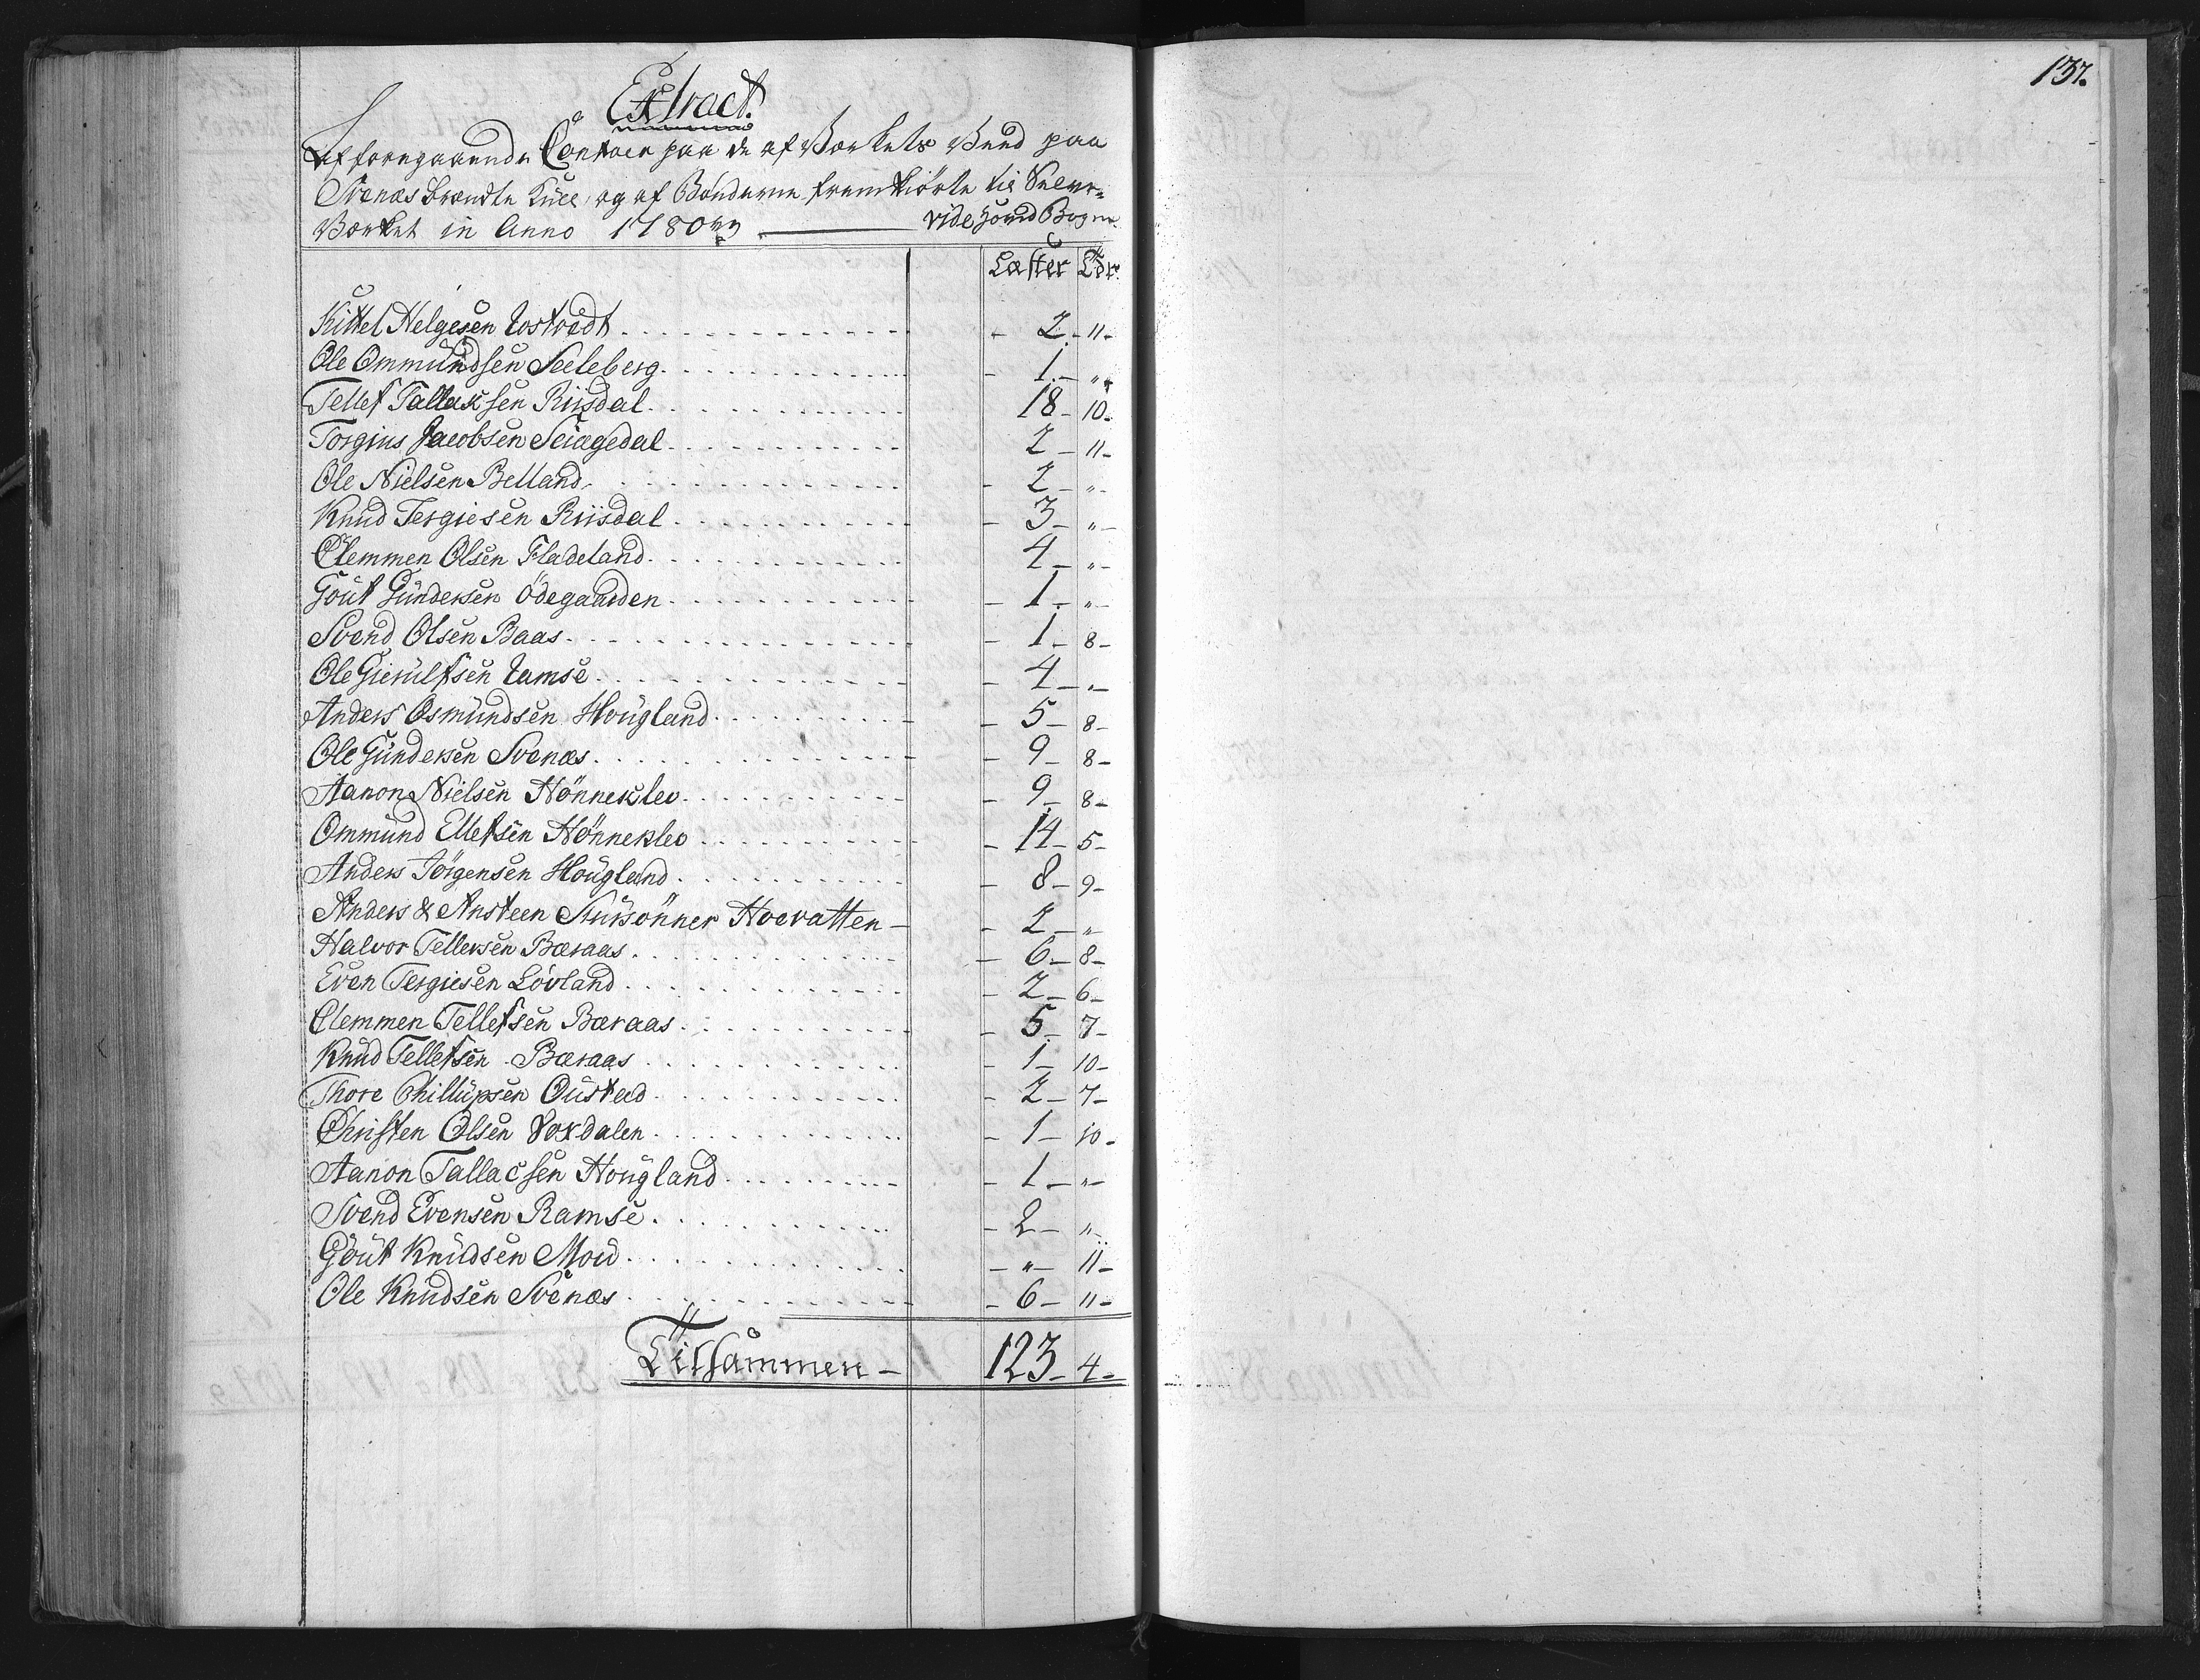 137.
Extract.
Af foregaaende Contoer paa de af Verkets Vend paa
Svenæs brændte Kull, og af Bönderne fremkiörte til
Værket in Anno 1780 vide Hoved Bogen
Læster Tdr.
Kittel Helgesen Tostvedt - 2 - 11 -
Ole Ommundsen Seeleberg - 1 - „
Tellef Tallaksen Riisdal 18 - 10 -
Torgius Jacobsen 2 - 11 -
Ole Nielsen Belland - 2 - „ -
Knud Tergiesen Riisdal - 3 - „ -
Clemmen Olsen Fladeland 4 - „ -
Gout Gundersen Ödegaarden - 1 - „ -
Svend Olsen Baas - 1 - 8 -
Ole Gierulfsen - 4 - „ -
Anders Osmundsen Hougland - 5 - 8 -
Ole Gundersen Svenæs - 9 - 8 -
Aanon Nielsen Hönneklev - 9 - 8 -
Ommund Ellefsen Hönneklev - 14 - 5 -
Anders Jörgensen Hougland - 8 - 9 -
Anders & Ansteen Hovvatten - - 2 - „ -
Halvor Tellefsen Bæraas - 6 - 8 -
Even Tergiesen Lövland - 2 - 6 -
Clemmen Tellefsen Bæraas - 5 - 7 -
Knud Tellefsen Bæraas - 1 - 10 -
Thore Phillupsen Oustad - 2 - 7 -
Christen Olsen - 1 - 10 -
Aanon Tallacsen Hougland - 1 - „ -
Svend Evensen Ramse - 2 - „ -
Gout Knudsen Moei - „ - 11 -
Ole Knudsen Svenæs - 6 - 11 -
Tilsammen - 123 - 4 -